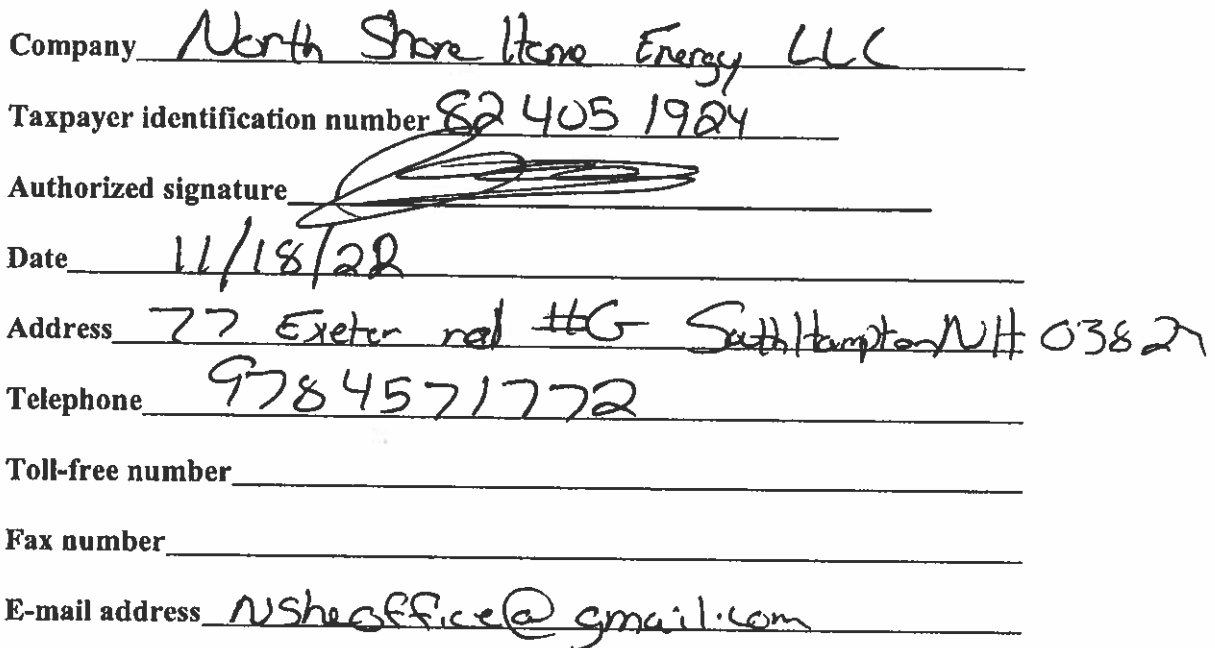 Company North Shore Home Energy LLC
Taxpayer identification number 82 405 1924
Authorized signature
Date 11/18/22
Address 77 Exeter rod #G South Hampton NH 03827
Telephone 9784571772
Toll-free number
Fax number
E-mail address Nsheoffice@gmail.com